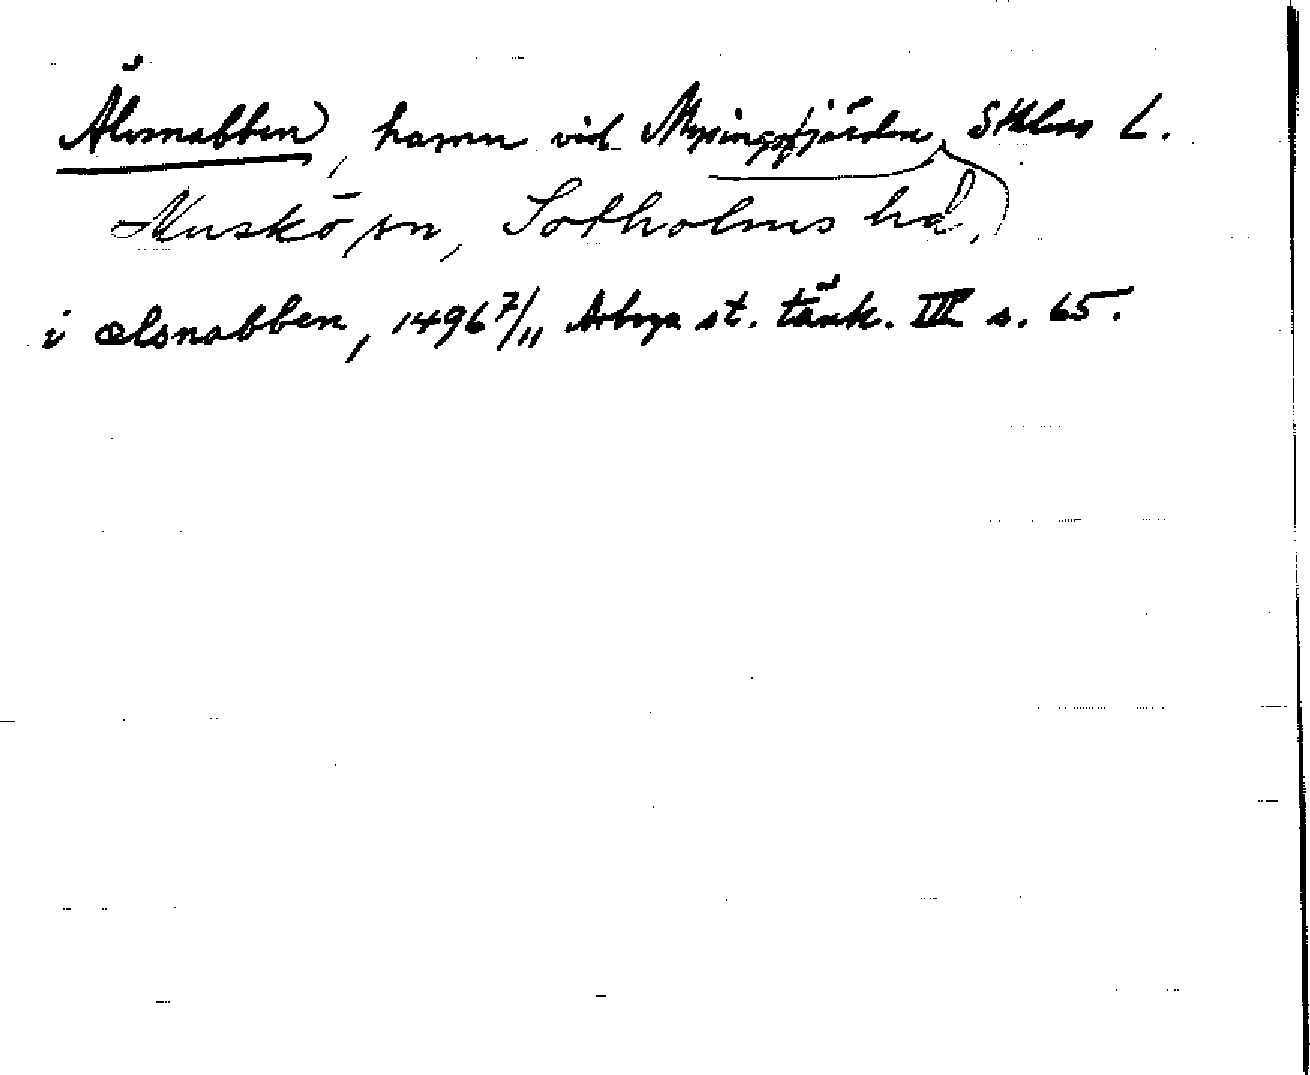 Älvsnabben, hamn vid Mysingsfjärden, Sthlms L.
Muskö sn, Sotholms hd,
i ælsnabben, 1496 7/11 Arboga st. tänk. III s. 65.